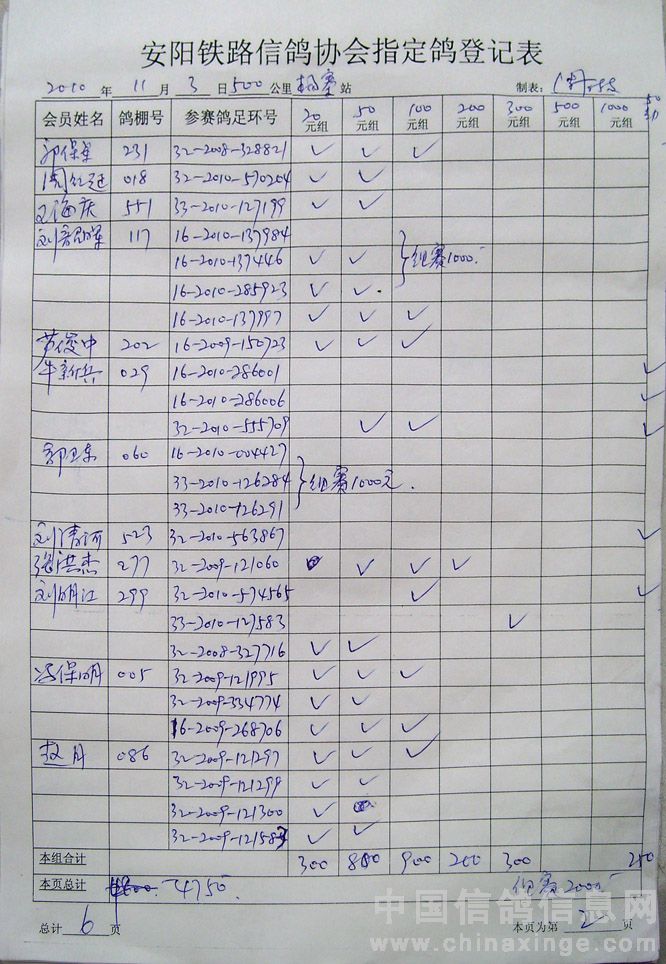 安阳铁路信鸽协会指定鸽登记表
2010 年 11 月 3 日 500 公里 站 制表：
会员姓名 鸽棚号 参赛鸽足环号 20元组 50元组 100元组 200元组 300元组 500元组 1000元组 50
郭保军 231 32-2008-328821 ✓ ✓ ✓
周红廷 018 32-2010-570204 ✓ ✓
文海庆 551 33-2010-127199 ✓ ✓
117 16-2010-137984
16-2010-137446 ✓ ✓ 组赛1000.
16-2010-285923 ✓ ✓
16-2010-137997 ✓ ✓ ✓
苏俊中 202 16-2009-150723 ✓ ✓ ✓
牛新兵 029 16-2010-286001 ✓
16-2010-286006 ✓
32-2010-555709 ✓ ✓ ✓
郭卫东 060 16-2010-004427
33-2010-126284 组赛1000元.
33-2010-126291
刘清河 523 32-2010-563867 ✓
张洪杰 277 32-2009-121060 ✓ ✓ ✓
刘明江 299 32-2010-574565 ✓ ✓
33-2010-127583 ✓
32-2008-327716 ✓ ✓
冯保明 005 32-2009-121995 ✓ ✓ ✓
32-2009-334774 ✓ ✓
16-2009-268706 ✓ ✓ ✓
赵月 086 32-2009-121297 ✓ ✓ ✓
32-2009-121299 ✓ ✓
32-2009-121300 ✓
32-2009-121583 ✓ ✓
本组合计 300 800 900 200 300 250
本页总计 4750. 组赛2000.
总计 6 页 本页为第 2 页
中国信鸽信息网
www.chinaxinge.com